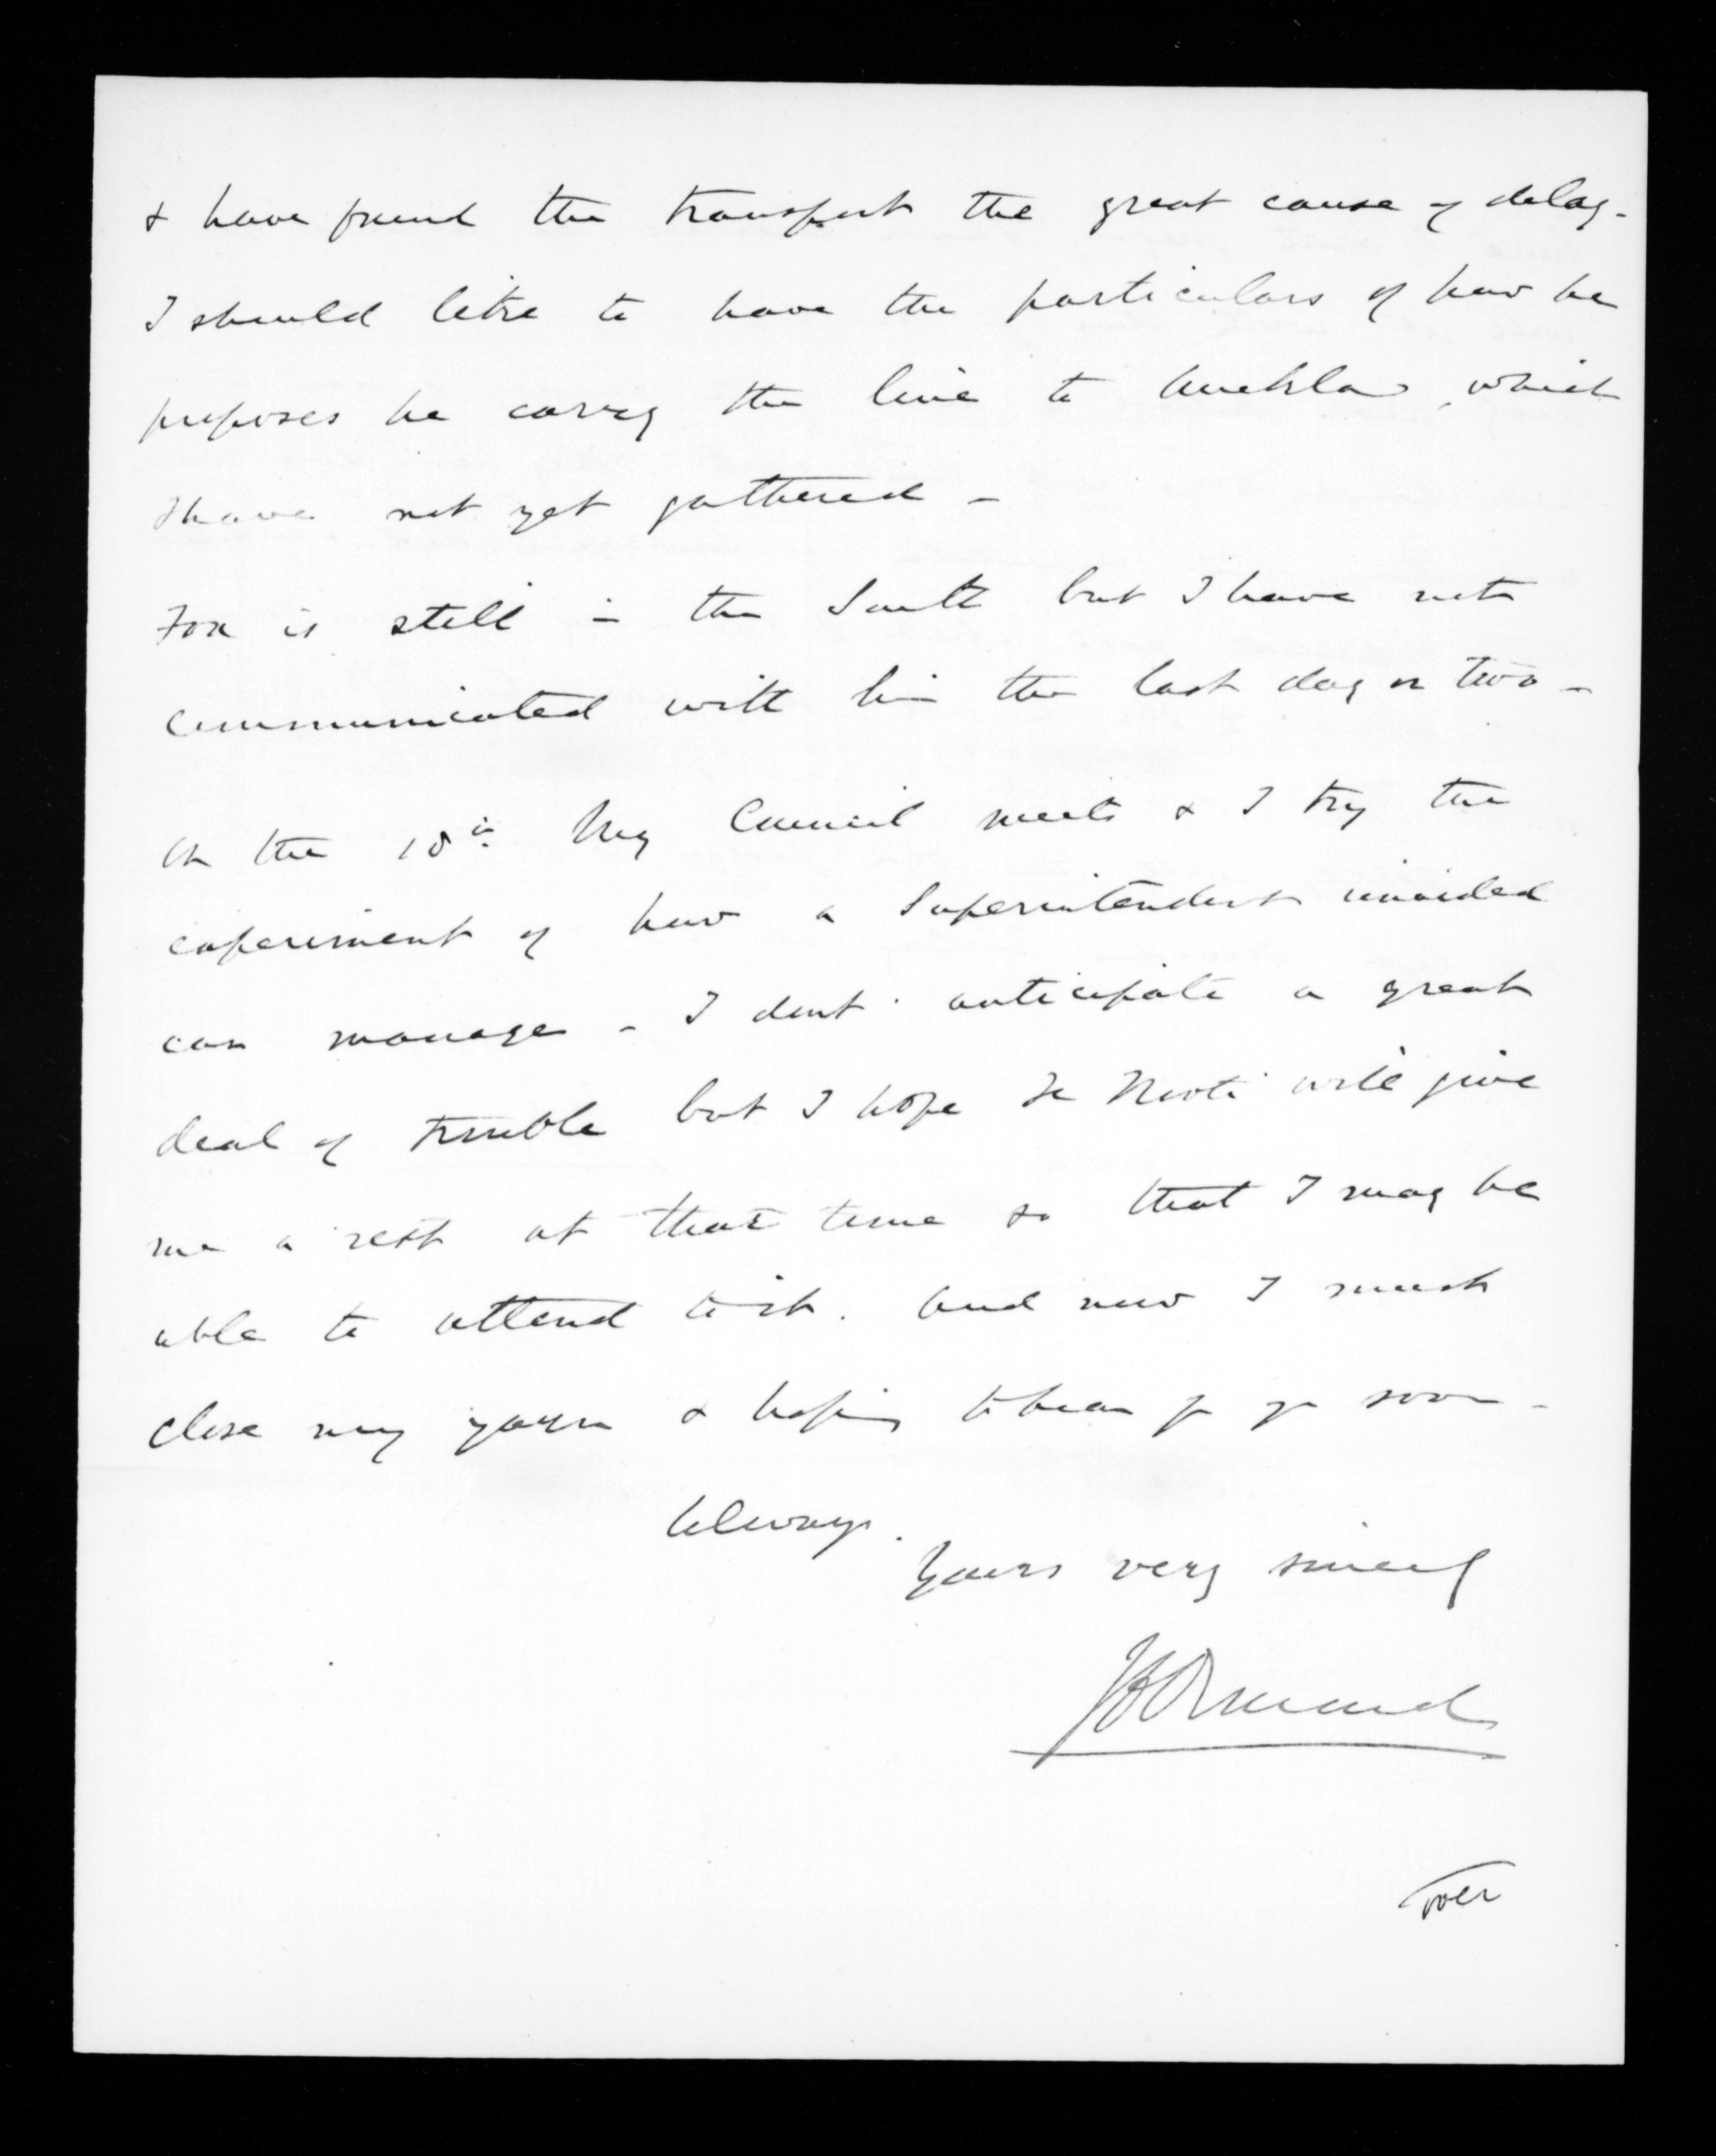 & have found the transport the great cause of delay -
I should like to have the particulars of how he
proposes he carry the line to Auckland, which
I have not yet gathered -
Fox is still in the South but I have not
communicated with him the last day or two -
On the 18th My Council meets & I try the
experiment of how a Superintendent unaided
can manage - I dont anticipate a great
deal of trouble but I hope Te Kooti will give
me a rest at that time so that I may be
able to attend to it. And now I must
close my yarn & hoping to hear fr yr soon -
Always.
Yours very sincerely
JDOrmond
Over